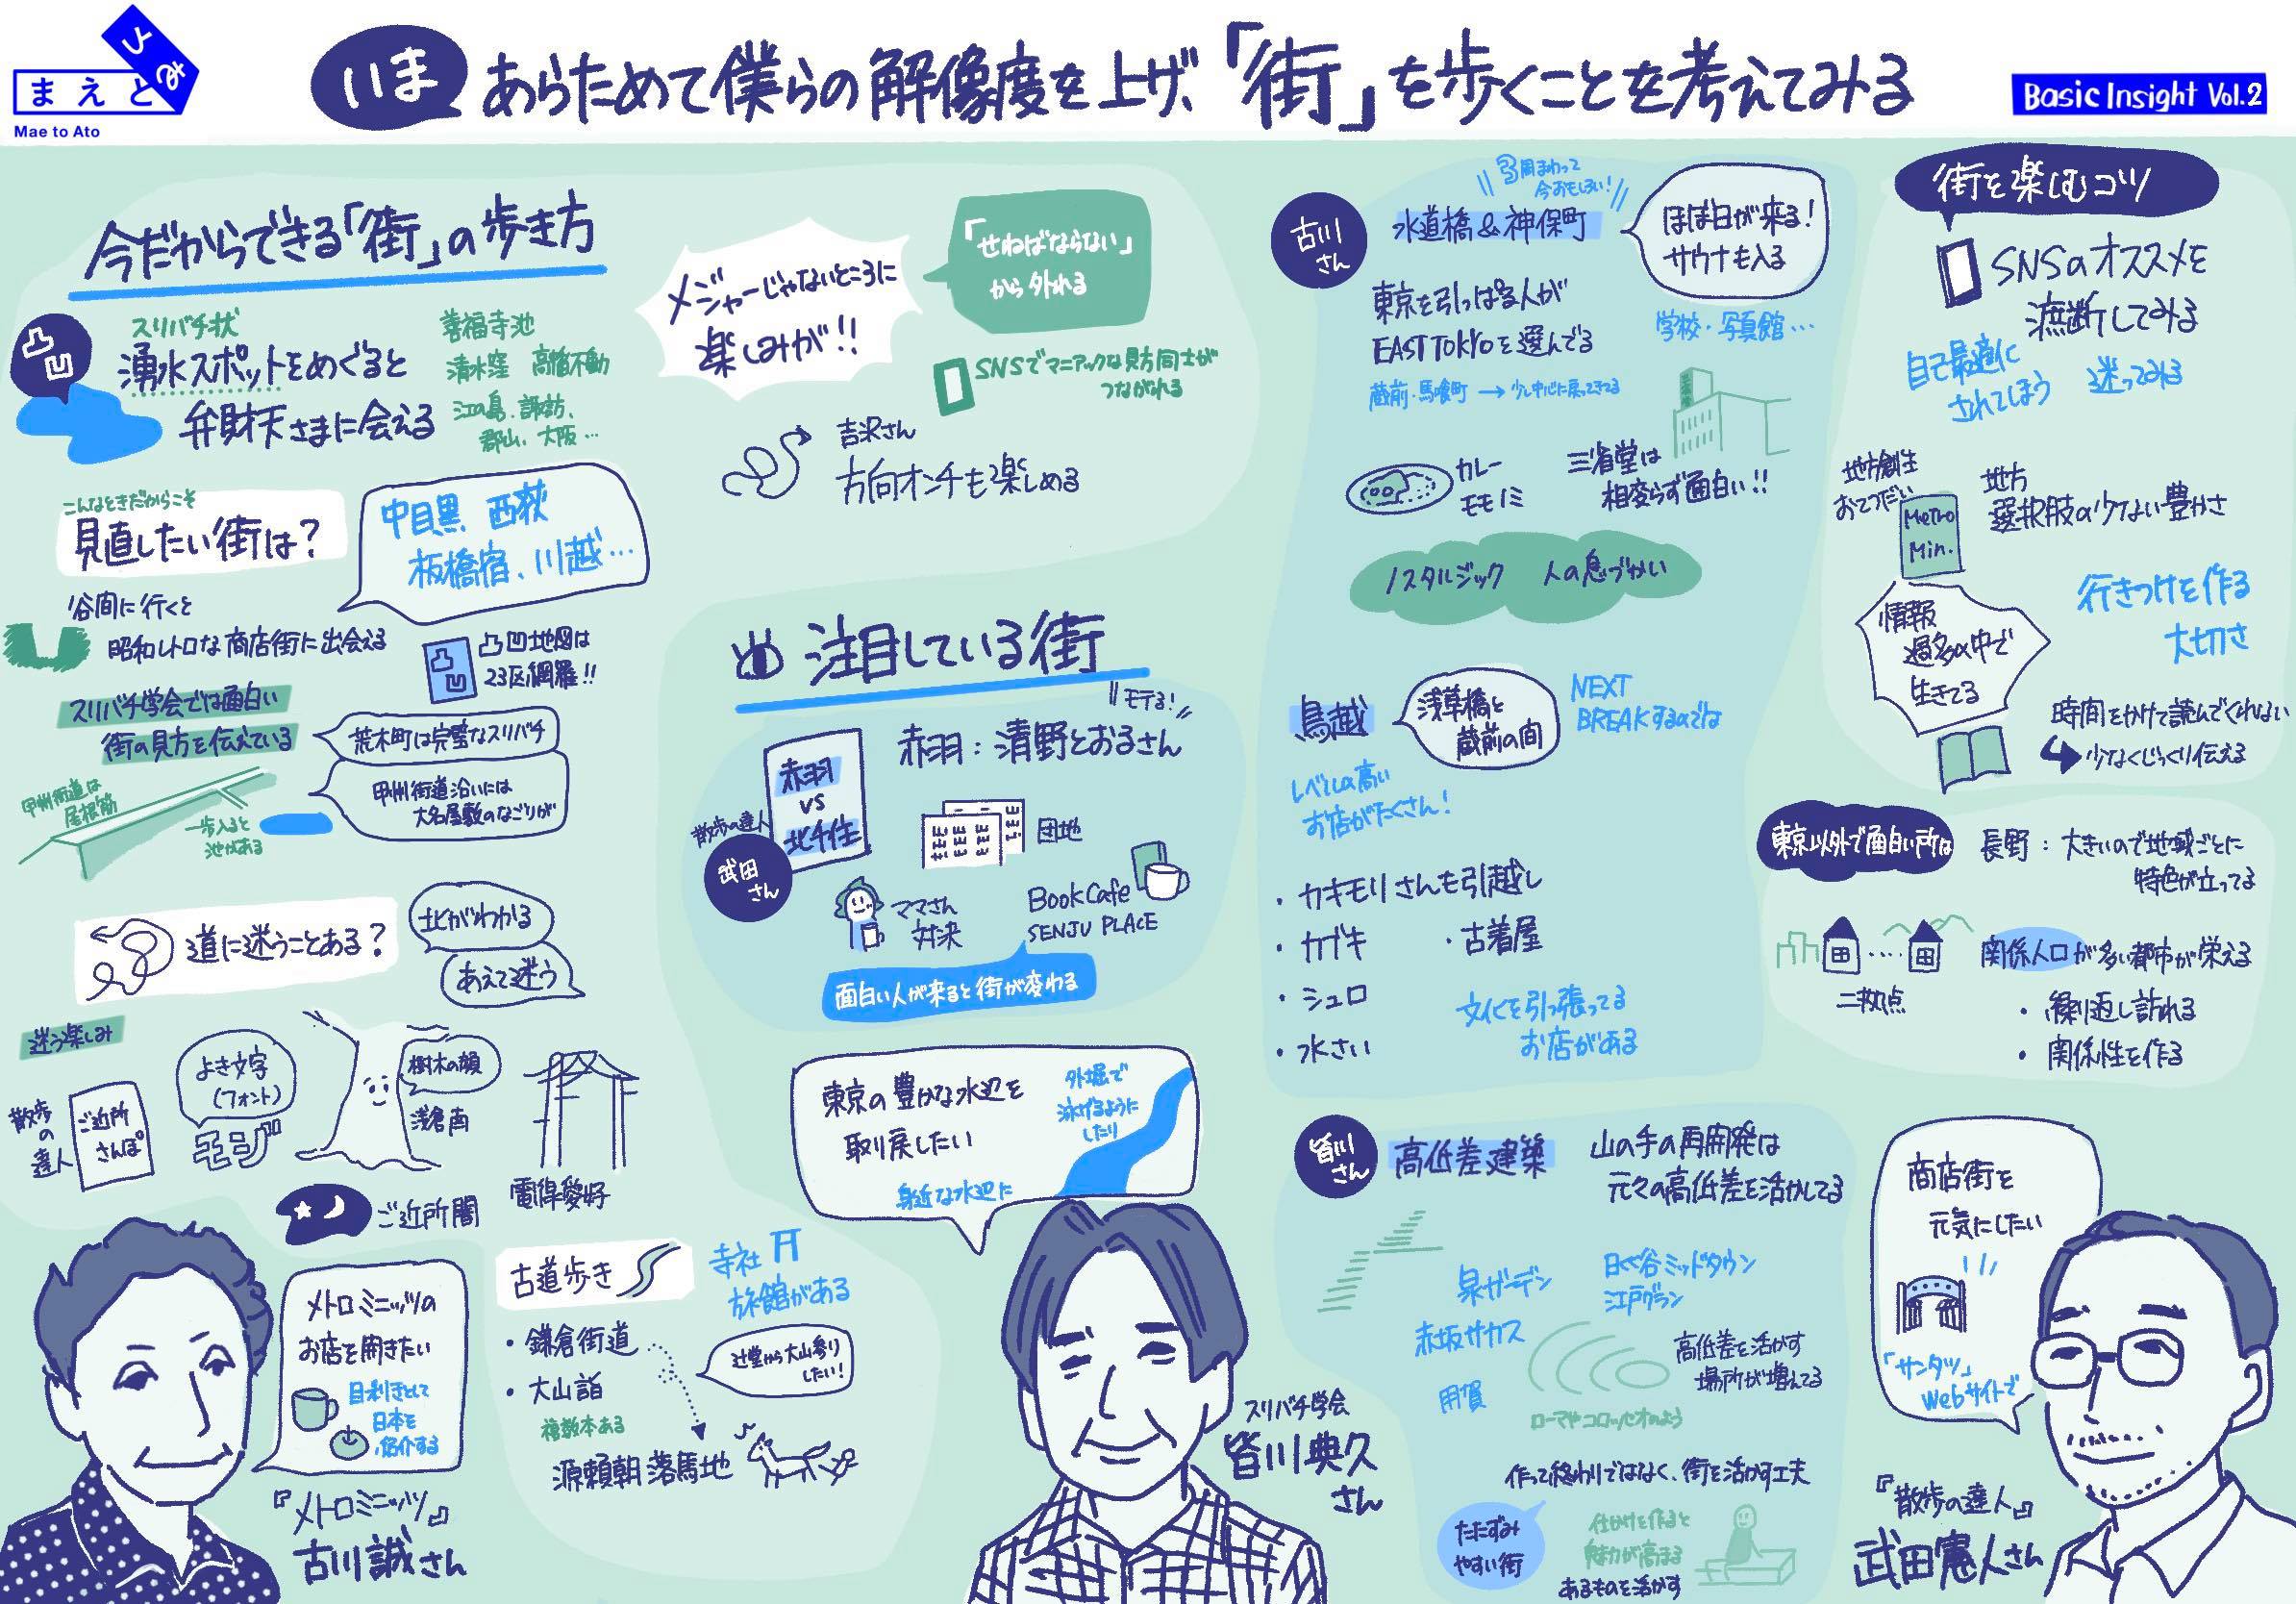 まえとひる
Mae to Ato
いま あらためて僕らの解像度を上げ、「街」を歩くことを考えてみる
Basic Insight Vol.2
今だからできる「街」の歩き方
凸凹
スリバチ状
湧水スポットをめぐると
弁財天さまに会える
善福寺池
清水窪 高幡不動
江の島、諏訪、
郡山、大阪…
こんなときだからこそ
見直したい街は?
中目黒 西荻
板橋宿、川越…
谷間に行くと
昭和レトロな商店街に出会える
凸凹
凸凹地図は
23区網羅!!
スリバチ学会では面白い
街の見方を伝えている
荒木町は完璧なスリバチ
甲州街道沿いには
大名屋敷のなごりが
甲州街道は
屋根筋
一歩入ると
池がある
道に迷うことある?
北がわかる
あえて迷う
迷う楽しみ
散歩の達人
ご近所さんぽ
よき文字
(フォント)
モジ
樹木の顔
浅倉南
電信愛好
ご近所闇
メトロミニッツの
お店を開きたい
目利きとして
日本を
紹介する
『メトロミニッツ』
古川誠さん
メジャーじゃないところに
楽しみが!!
「せねばならない」
から外れる
SNSでマニアックな見方同士が
つながれる
吉沢さん
方向オンチも楽しめる
注目している街
散歩の達人
武田さん
赤羽
vs
北千住
モテる!
赤羽:清野とおるさん
団地
ママさん
対決
Book Cafe
SENJU PLACE
面白い人が来ると街が変わる
東京の豊かな水辺を
取り戻したい
外堀で
泳げるように
したり
身近な水辺に
古道歩き
寺社
旅館がある
・鎌倉街道
・大山詣
複数本ある
辻堂から大山参り
したい!
源頼朝落馬地
スリバチ学会
皆川典久
さん
古川さん
3周まわって
今おもしろい!
水道橋&神保町
ほぼ日が来る!
サウナも入る
東京を引っぱる人が
EAST TOKYOを選んでる
学校・写真館…
蔵前・馬喰町→少し中心に戻ってきてる
カレー
モモノミ
三省堂は
相変らず面白い!!
ノスタルジック 人の息づかい
鳥越
浅草橋と
蔵前の間
NEXT
BREAKするのでは
レベルの高い
お店がたくさん!
・カキモリさんも引越し
・カブキ ・古着屋
・シュロ
・水さい
文化を引っ張ってる
お店がある
皆川さん
高低差建築
山の手の再開発は
元々の高低差を活かしてる
泉ガーデン
日比谷ミッドタウン
江戸グラン
赤坂サカス
用賀
高低差を活かす
場所が増えてる
ローマやコロッセオのよう
作って終わりではなく、街を活かす工夫
たたずみ
やすい街
仕かけを作ると
魅力が高まる
あるものを活かす
街を楽しむコツ
SNSのオススメを
遮断してみる
自己最適に
されてしまう
迷ってみる
地方創生
おてつだい
Metro
Min.
地方
選択肢の少ない豊かさ
行きつけを作る
大切さ
情報
過多の中で
生きてる
時間をかけて読んでくれない
少なくじっくり伝える
東京以外で面白い所は
長野:大きいので地域ごとに
特色が立ってる
二拠点
関係人口が多い都市が栄える
・繰り返し訪れる
・関係性を作る
商店街を
元気にしたい
「サンタツ」
Webサイトで
『散歩の達人』
武田憲人さん